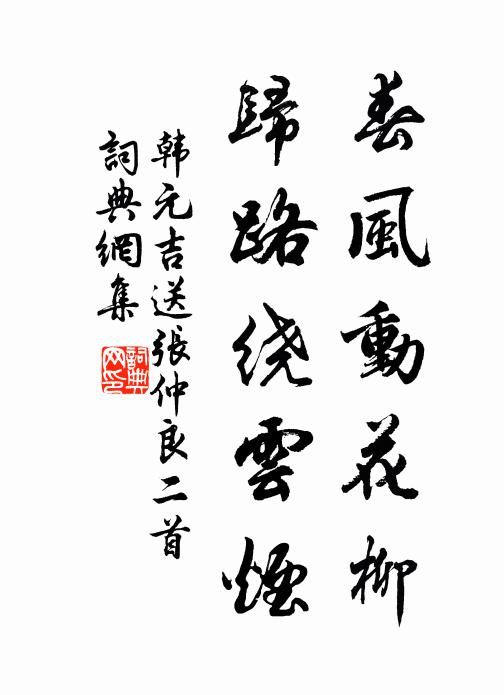 春風動花柳
歸路绕雲煙
韩元吉送張仲良二首
詞典網集
詞典网印